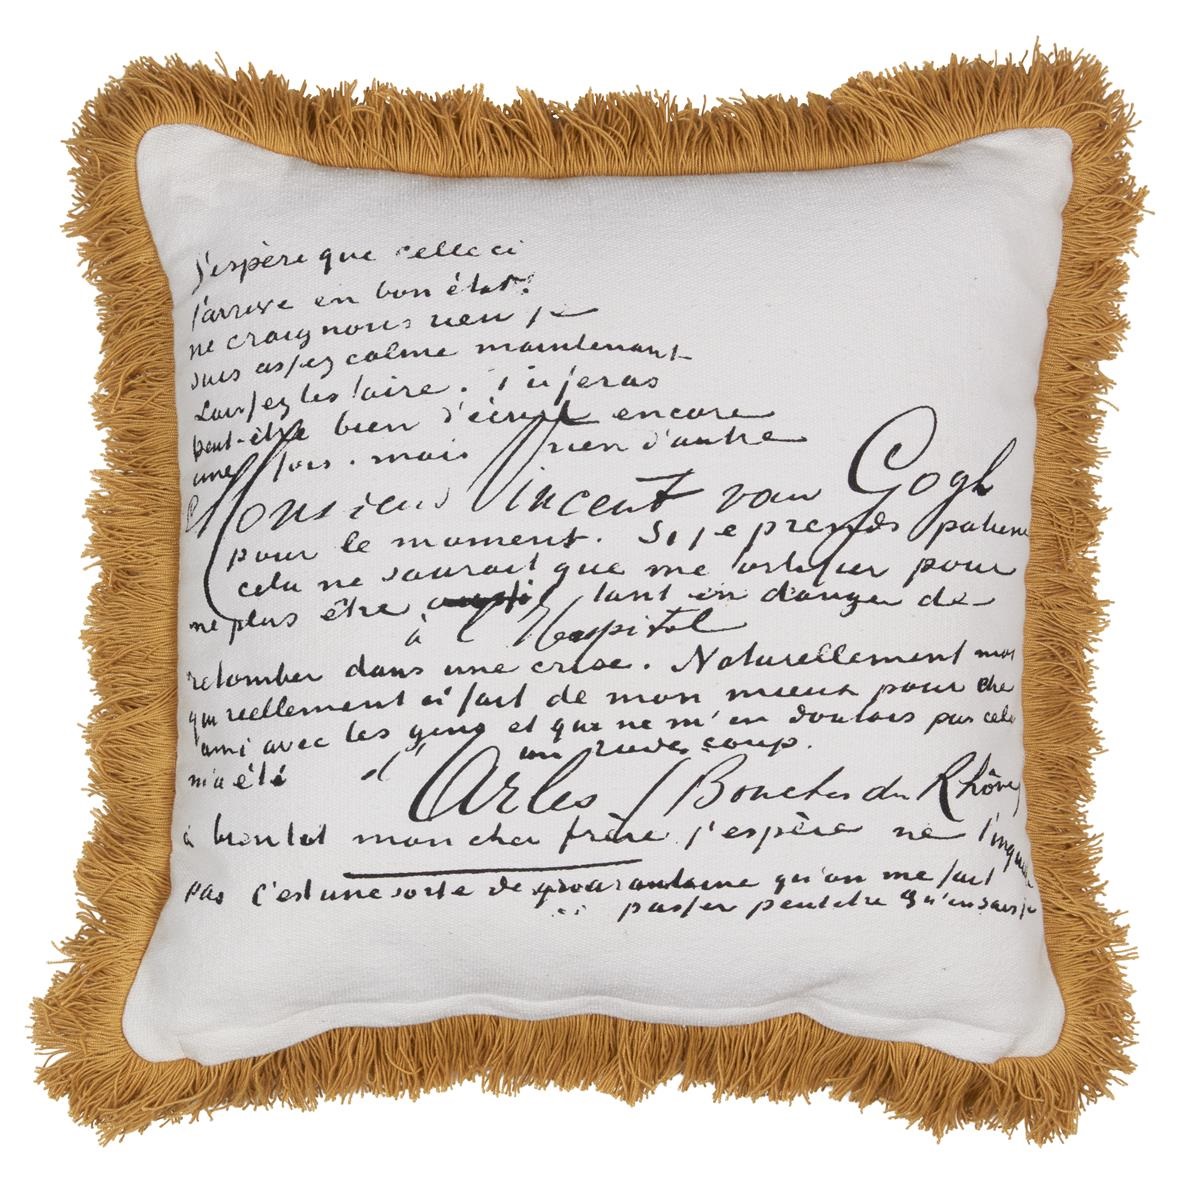 J'espère que celle ci
t'arrive en bon état.
ne craignons rien je
suis assez calme maintenant
Laissez les faire. Tu feras
peut-être bien d'écrire encore
une fois. mais rien d'autre
Monsieur Vincent van Gogh
pour le moment. Si je prends patience
cela ne saurait que me fortifier pour
ne plus être tant en danger de
à l'Hospital
retomber dans une crise. Naturellement moi
qui reellement ai fait de mon mieux pour être
ami avec les gens et que ne m'en doutais pas cela
m'a été un rude coup.
d'Arles (Bouches du Rhône)
à bientot mon cher frère j'espère ne t'inquiète
pas C'est une sorte de quarantaine qu'on me fait
passer peutetre qu'en sais je